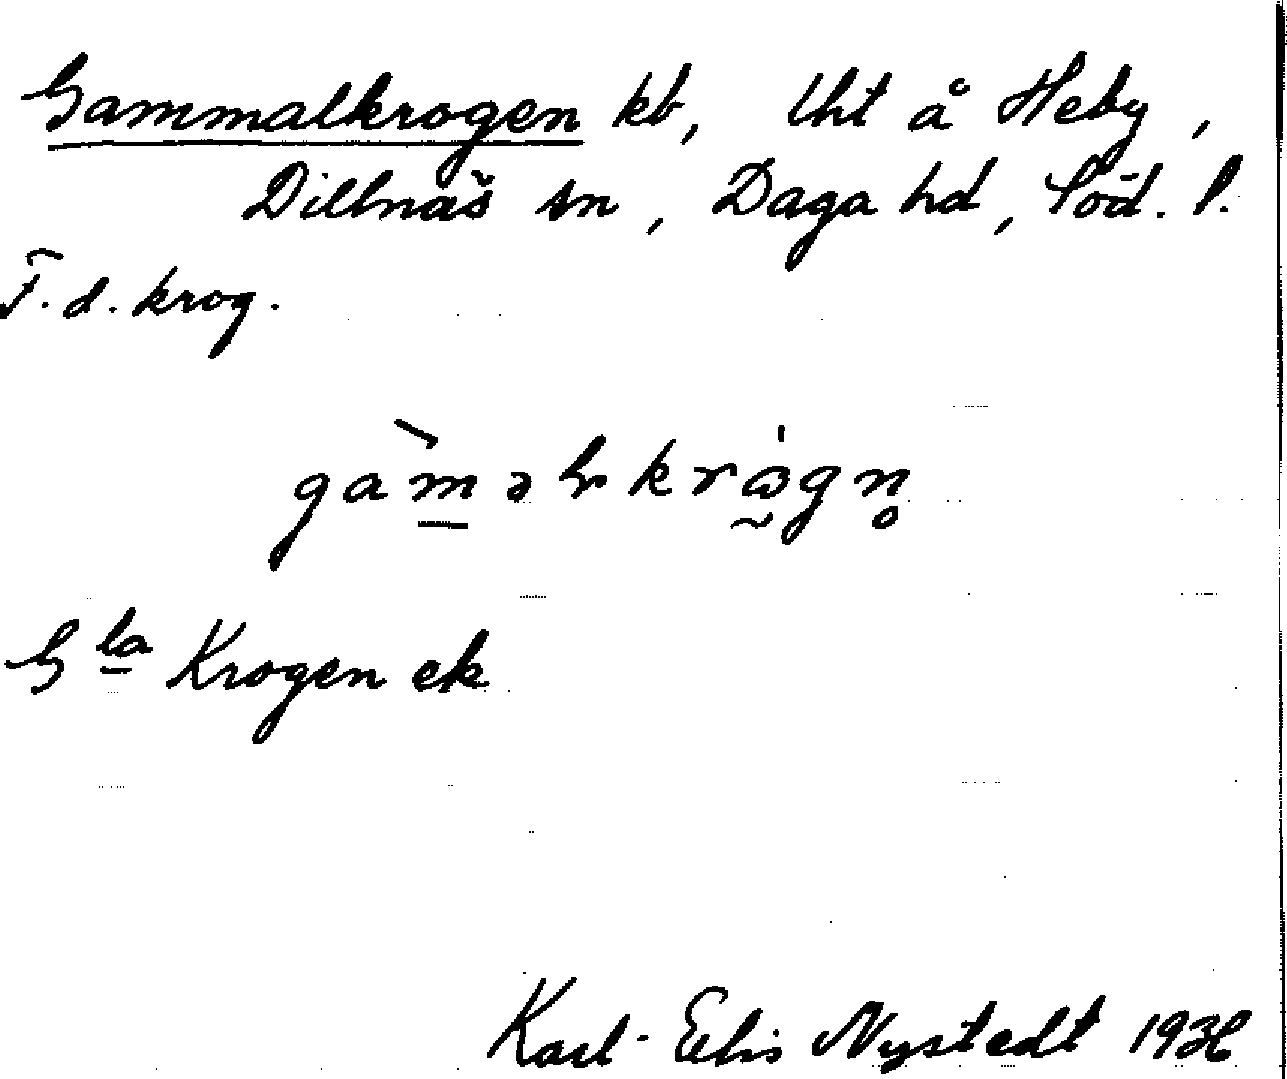 Gammalkrogen kb, lht å Heby,
Dillnäs sn, Daga hd, Söd. l.
F. d. krog.
G la Krogen ek
Karl-Elis Nystedt 1936